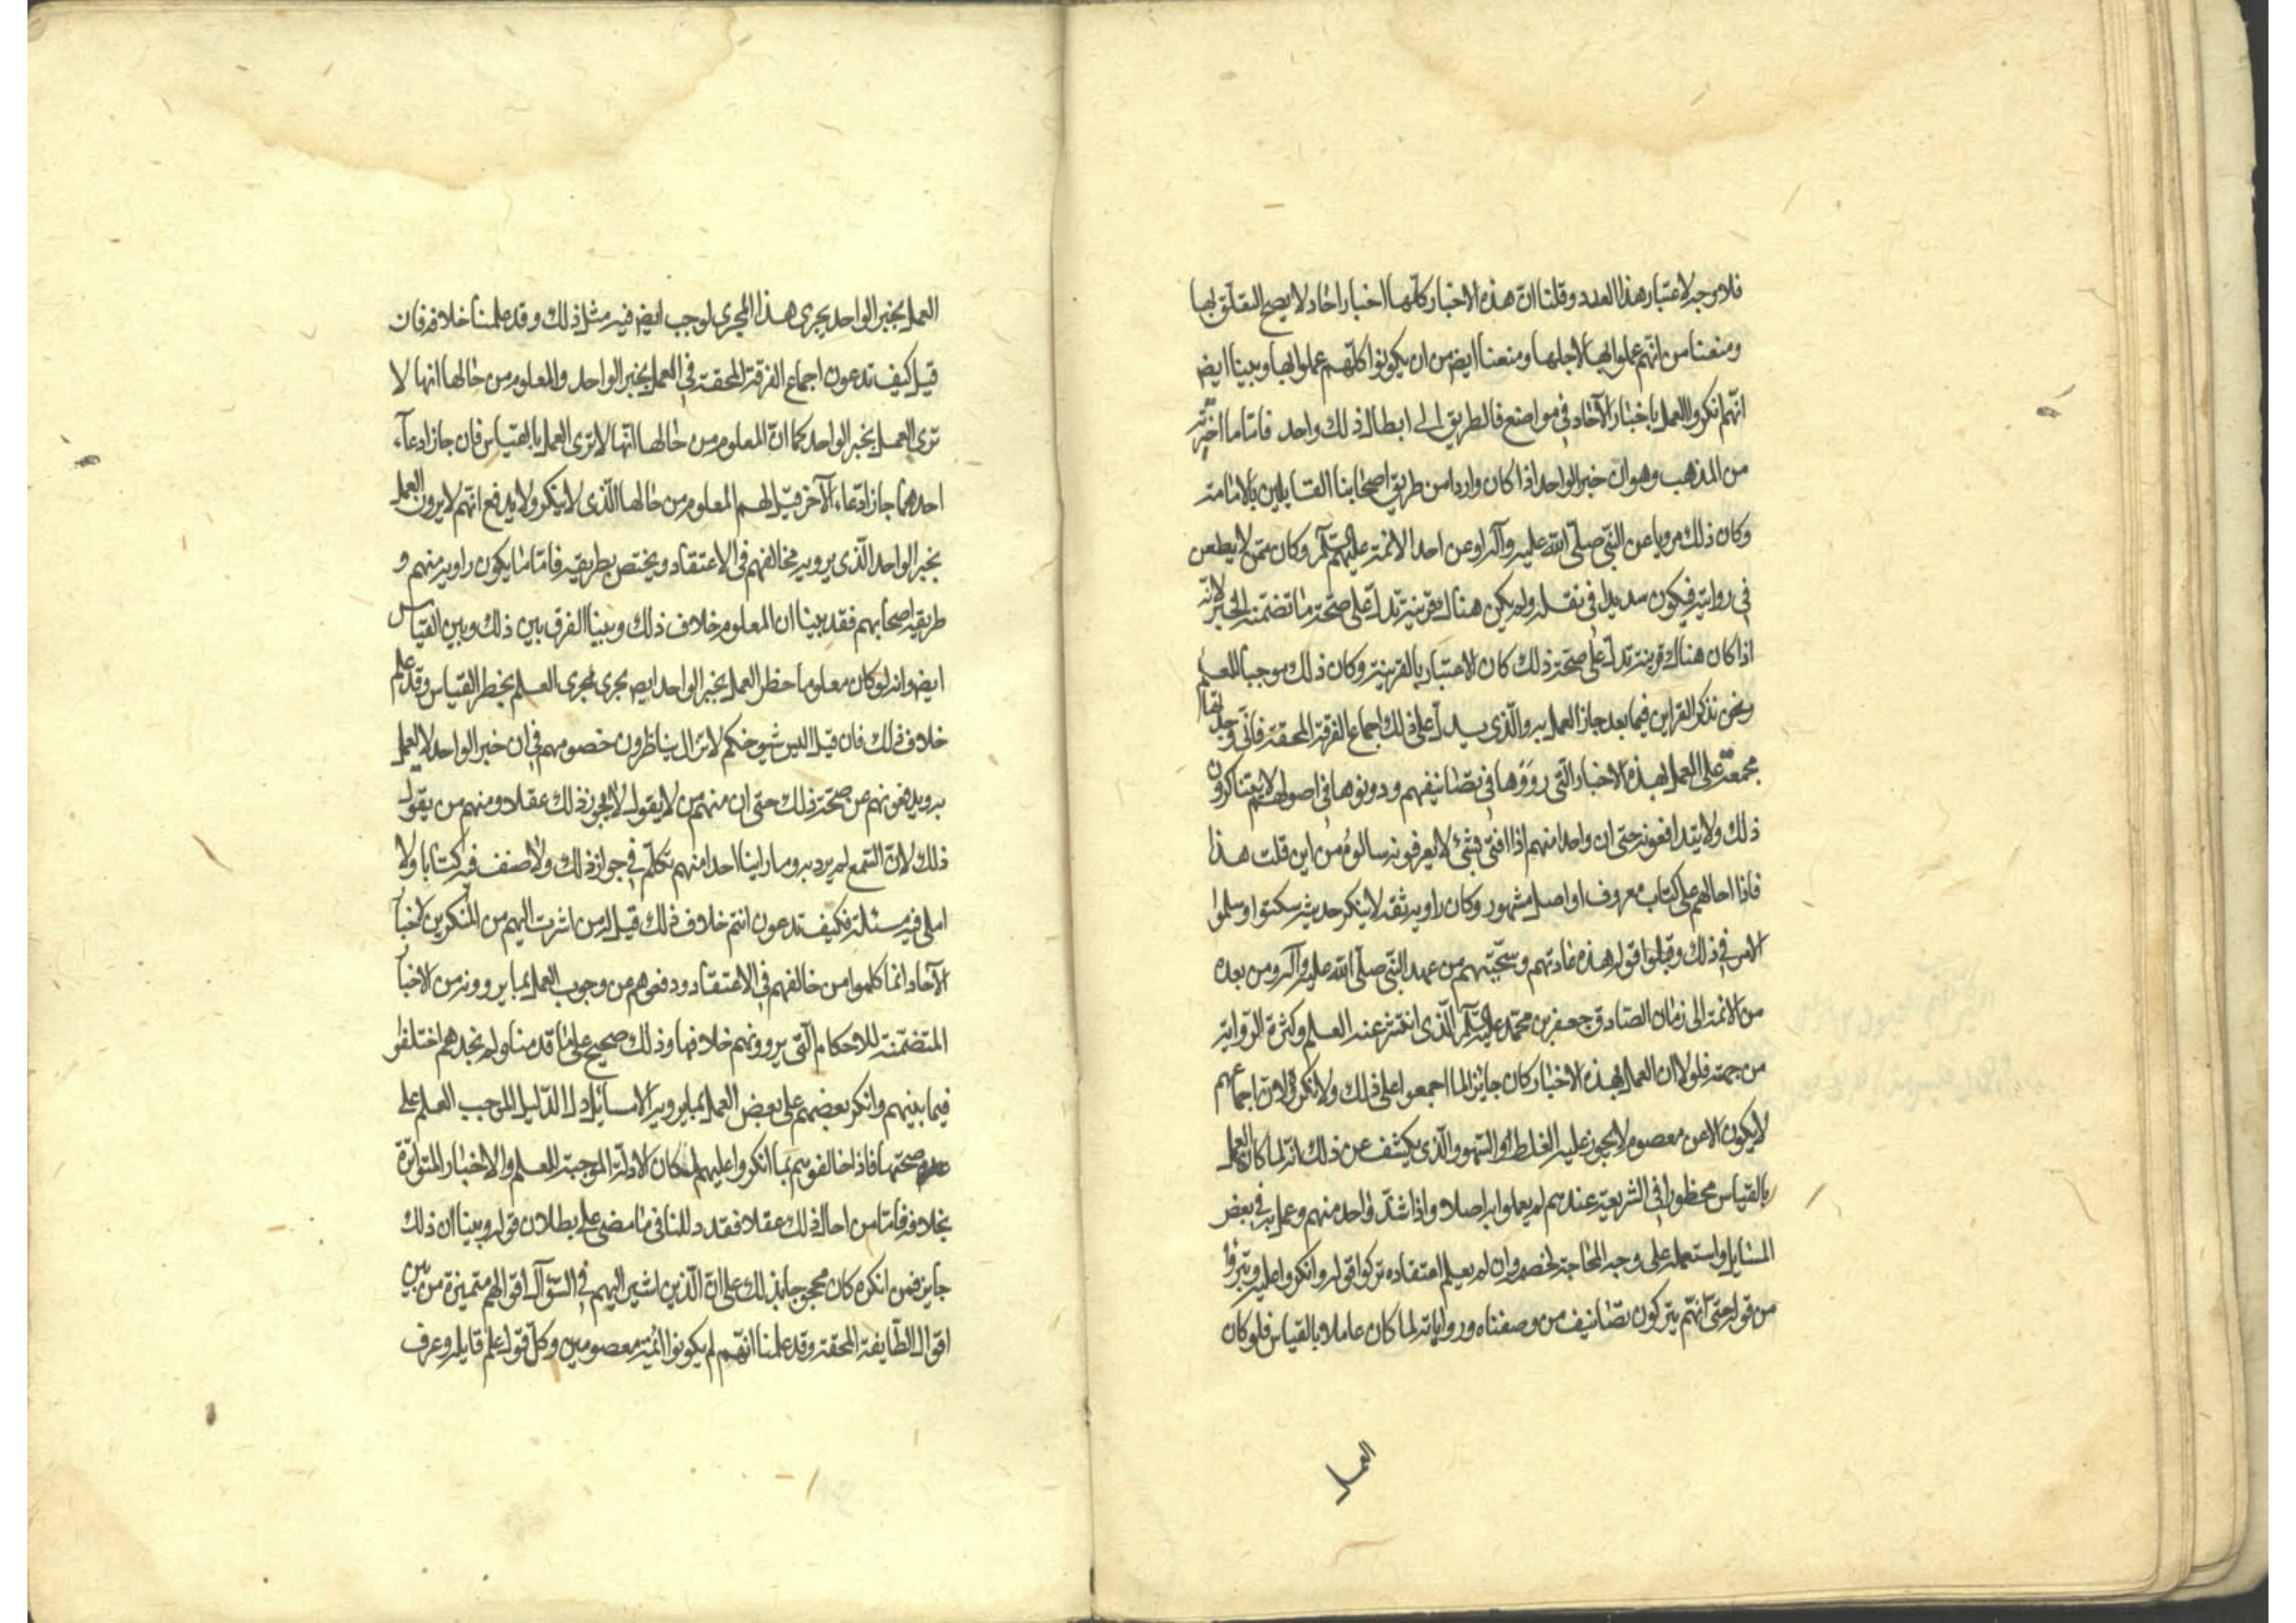 فلا وجه لاعتبار هذا العدد وقلنا انّ هذه الاخبار كلّها اخبار اخاد لا يصح التعلّق بها
ومنعنا من انّهم عملوا بها لاجلها ومنعنا ايض من ان يكونوا كلّهم عملوا بها وبينا ايض
انّهم انكروا العمل باخبار الآخاد في مواضع فالطريق الى ابطال ذلك واحد فامّا ما اخترته
من المذهب وهو انّ خبر الواحد اذا كان واردا من طريق اصحابنا القايلين بالامامة
وكان ذلك مرويا عن النبيّ صلّى الله عليه وآله او عن احد الائمة عليهم السّلم وكان ممّن لا يطعن
في روايته فيكون سديدا في نقله ولم يكن هناك قرينة تدلّ على صحّة ما تضمّنه الخبر لانّه
اذا كان هناك قرينة تدلّ على صحّة ذلك كان الاعتبار بالقرينة وكان ذلك موجبا للعلم
ونحن نذكر القراين فيما بعد جاز العمل به والّذي يدلّ على ذلك اجماع الفرقة المحقّة فانّي وجدتها
مجمعة على العمل بهذه الاخبار الّتي رووها في تصانيفهم ودونوها في اصولهم لا يتناكرون
ذلك ولا يتدافعونه حتى ان واحدا منهم اذا افتى بشئ لا يعرفونه سالوه من اين قلت هذا
فاذا احالهم على كتاب معروف او اصل مشهور وكان راويه ثقه لا ينكر حديثه سكتوا وسلموا
الامر في ذلك وقبلوا قوله هذه عادتهم وسجيّتهم من عهد النبيّ صلّى الله عليه وآله ومن بعده
من الائمة الى زمان الصّادق جعفر بن محمّد عليه السّلم الّذى انتشر عنه العلم وكثرة الرواية
من جهته فلولا ان العمل بهذه الاخبار كان جايزا لما اجمعوا على ذلك ولانكروه لان اجماعهم
لا يكون الا عن معصوم لا يجوز عليه الغلط والسّهو والّذى يكشف عن ذلك انه لما كان العمل
بالقياس محظورا في الشريعة عندهم لم يعملوا به اصلا واذا شذّ واحد منهم وعمل به في بعض
المسايل واستعمله على وجه المحاجة لخصمه وان لم يعلم اعتقاده تركوا قوله وانكروا عليه وتبرّوا
من قوله حتى انّهم يتركون تصانيف من وصفناه ورواياته لما كان عاملا بالقياس فلو كان
العمل
العمل بخبر الواحد يجرى هذا المجرى لوجب ايض فيه مثل ذلك وقد علمنا خلافه فان
قيل كيف تدعون اجماع الفرقة المحقة في العمل بخبر الواحد والمعلوم من حالها انها لا
ترى العمل بخبر الواحد كما انّ المعلوم من حالها انّها لا ترى العمل بالقياس فان جاز ادعاء
احدهما جاز ادّعاء الآخر قيل لهم المعلوم من حالها الّذى لا ينكر ولا يدفع انّهم لا يرون العمل
بخبر الواحد الّذى يرويه مخالفهم في الاعتقاد ويختص بطريقه فامّا ما يكون راويه منهم و
طريقه اصحابهم فقد بينا ان المعلوم خلاف ذلك وبينا الفرق بين ذلك وبين القياس
ايض وانه لو كان معلوما حظر العمل بخبر الواحد ايض يجرى مجرى العلم بحظر القياس وقد علم
خلاف ذلك فان قيل اليس شيوخكم لا تزال يناظرون خصومهم في ان خبر الواحد لا يعمل
به ويدفعونهم عن صحّة ذلك حتى ان منهم من لا يقول لا يجوز ذلك عقلا ومنهم من يقول
ذلك لانّ السّمع لم يرد به وما راينا احدا منهم تكلّم في جواز ذلك ولا صنف فيه كتابا ولا
املى فيه مسئلة فكيف تدعون انتم خلاف ذلك قيل له من اشرت اليهم من المنكرين لاخبار
الآحاد انما كلموا من خالفهم في الاعتقاد ودفعوهم من وجوب العمل بما يروونه من الاخبار
المتضمّنة للاحكام الّتى يروونهم خلافها وذلك صحيح على ما قدمنا ولم نجدهم اختلفوا
فيما بينهم وانكر بعضهم على بعض العمل بما يرويه الا مسايل دل الدّليل الموجب العلم على
صحّتها فاذا خالفوهم بما انكروا عليهم لمكان الادلّة الموجبة للعلم والاخبار المتواترة
بخلافه فامّا من احال ذلك عقلا فقد دللنا في ما مضى على بطلان قوله وبينا ان ذلك
جايز فمن انكره كان محجوجا بذلك على انّ الّذين اشير اليهم في السّؤال اقوالهم متميزة من بين
اقوال الطّايفة المحقة وقد علمنا انّهم لم يكونوا ائمّة معصومين وكلّ قول علم قايله وعرف